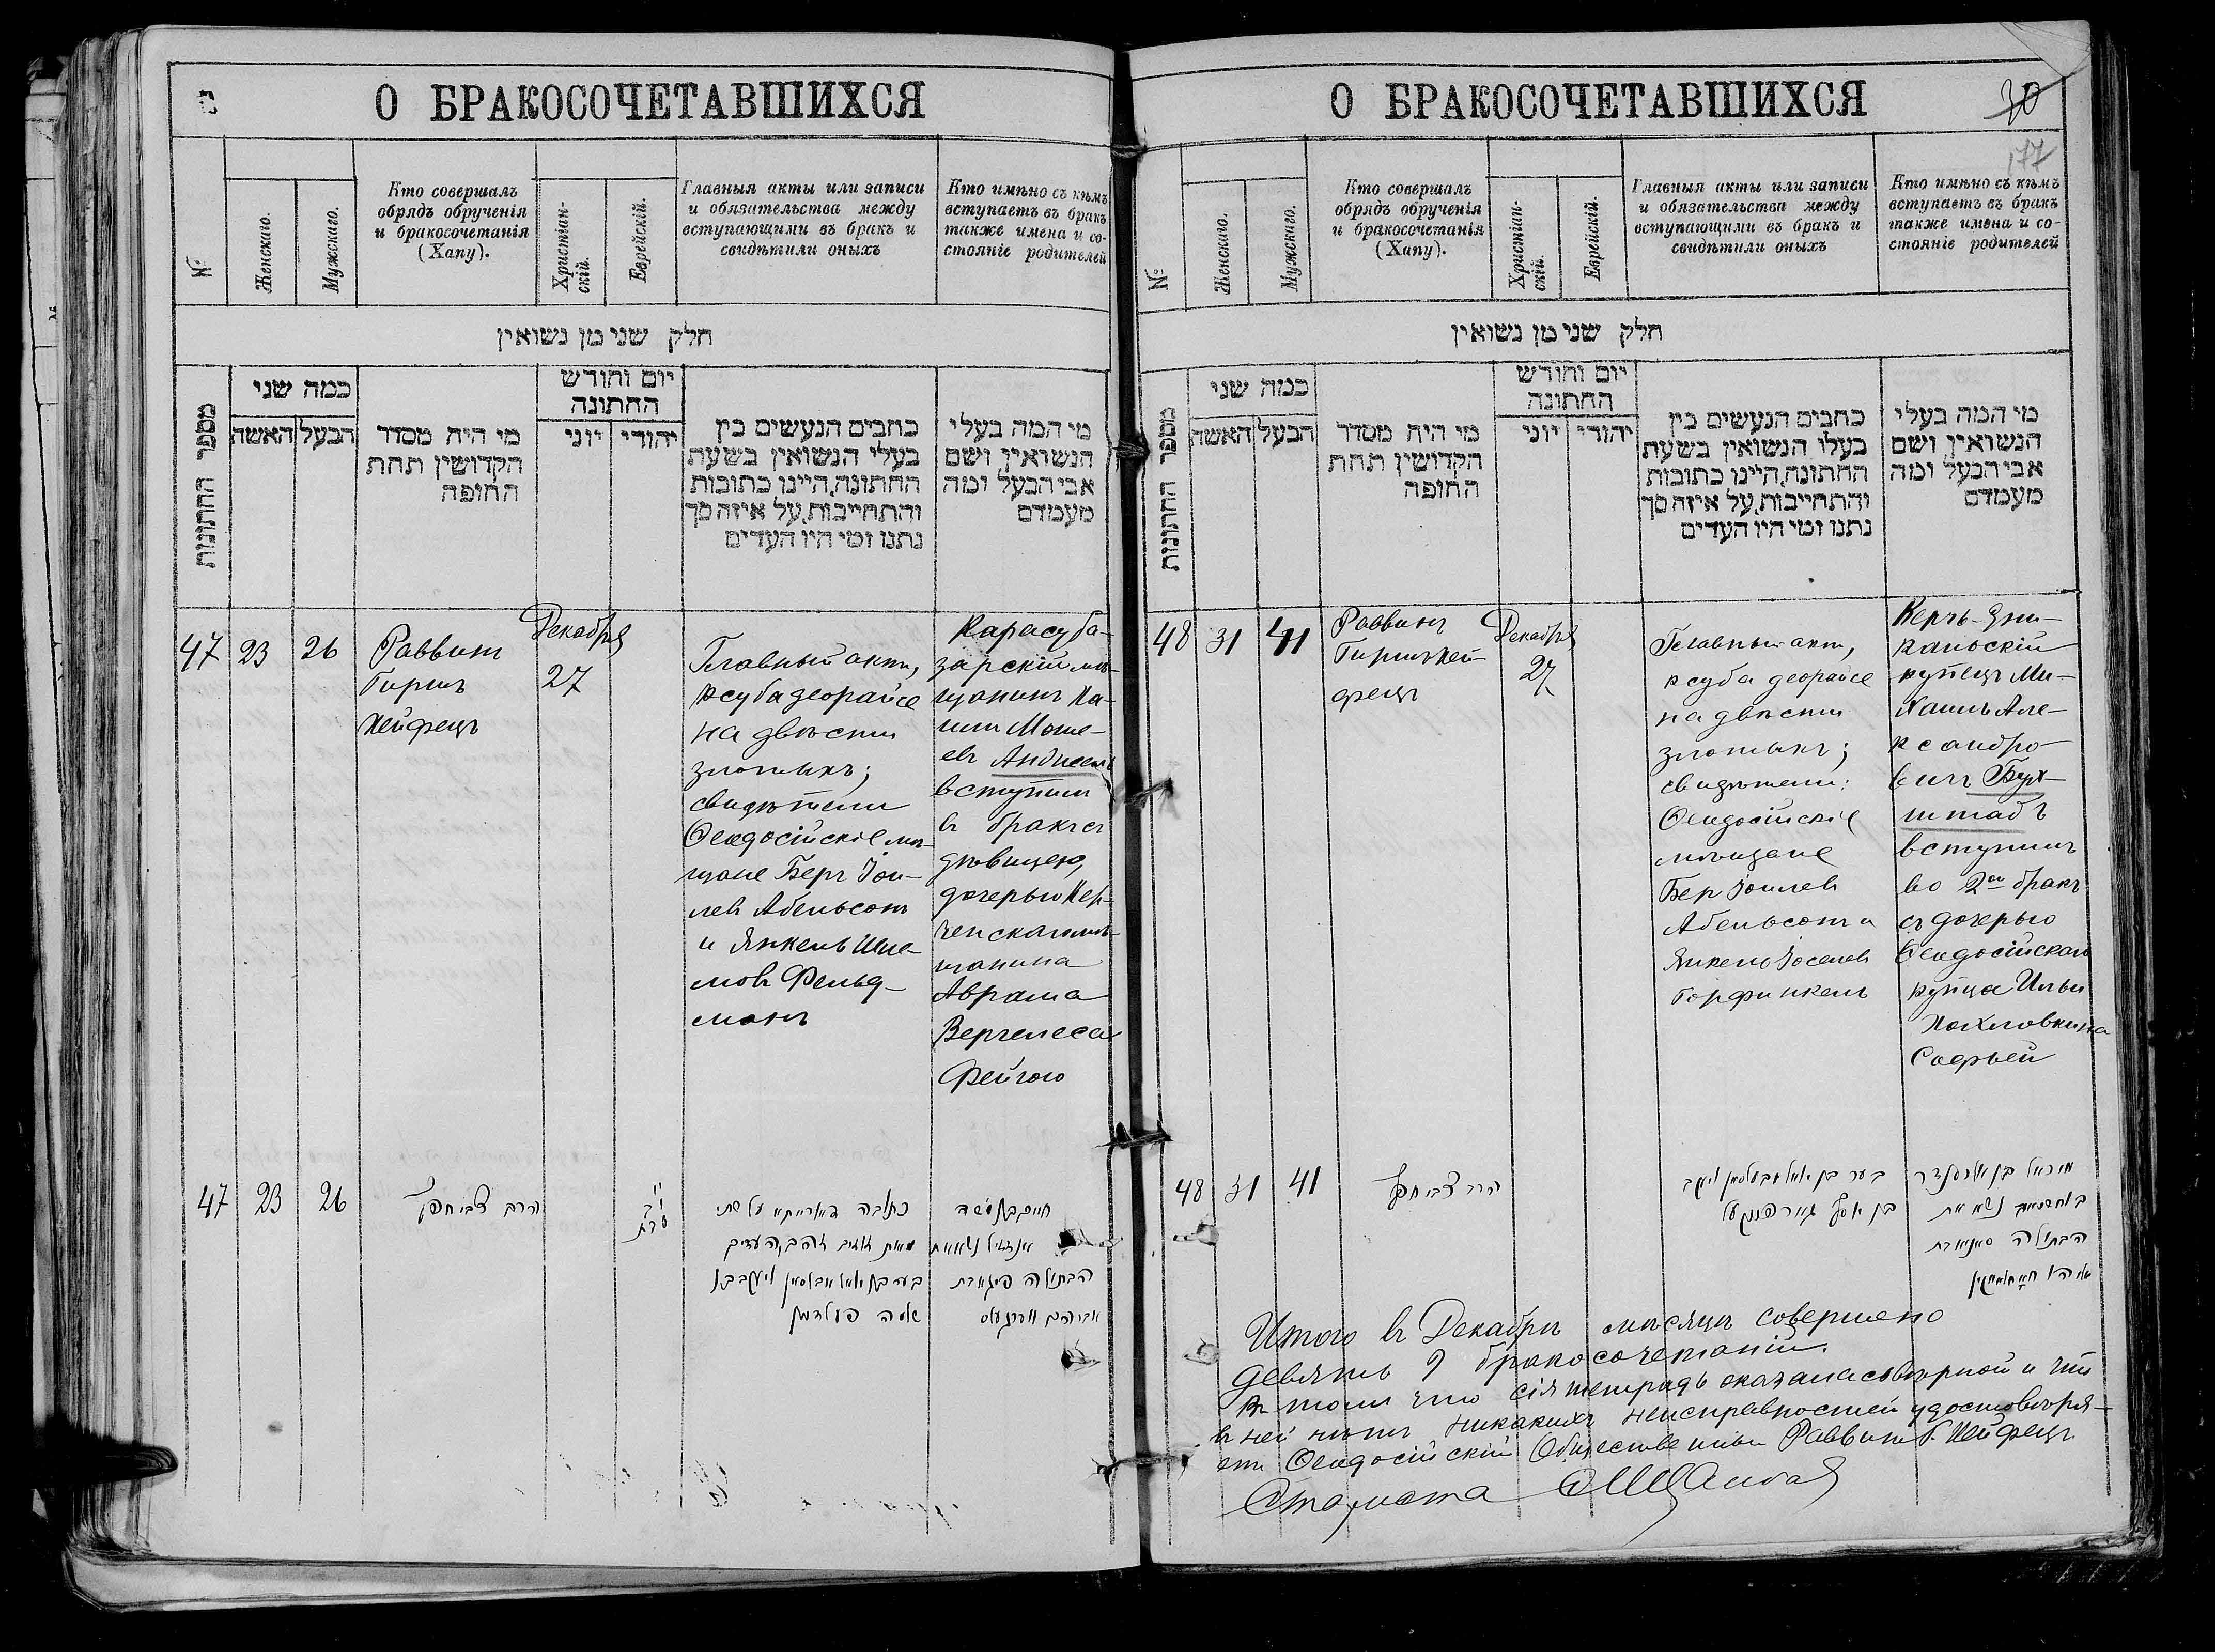 О БРАКОСОЧЕТАВШИХСЯ
№
Женскаго.
Мужскаго.
Кто совершалъ
обрядъ обрученія
и бракосочетанія
(Хапу).
Христіан-
скій.
Еврейскій.
Главныя акты или записи
и обязательства между
вступающими въ бракъ и
свидѣтили оныхъ
Кто имѣно съ кѣмъ
вступаетъ въ бракъ
также имена и со-
стояніе родителей
חלק שני מן נשואין
מספר החתונות
כמה שני
האשה
הבעל
מי היה מסדר
הקדושין תחת
החופה
יום וחודש
החתונה
יוני
יהודי
כתבים הנעשים בין
בעלי הנשואין בשעת
החתונה היינו כתובות
והתחייבות על איזה סך
נתנו ומי היו העדים
מי המה בעלי
הנשואין ושם
אבי הבעל ומה
מעמדם
47
23
26
Раввинъ
Гиршъ
Хейфецъ
Декабря
27
Главный актъ,
ксуба деорайсе
на двѣсти
злотыхъ;
свидѣтели
Ѳеодосійскіе мѣ-
щане Беръ Іои-
левъ Абельсонъ
и Янкель Шле-
мовъ Фельд-
манъ
Карасуба-
зарскій мѣ-
щанинъ Ха-
имъ Моше-
евъ
вступилъ
въ бракъ съ
дѣвицею,
дочерью Кер-
ченскаго мѣ-
щанина
Аврама
Вергелеса
Фейгою
47
23
26
הרב צבי חפץ
י״ב
טבת
כתובה דאורייתא על שתי
מאות זהובים והעדים
בער בן יואל אבעלסאן ויעקב בן
שלמה פעלדמן
חיים בן משה
נשא את
הבתולה פיגא בת
אברהם ווערגעלעס
О БРАКОСОЧЕТАВШИХСЯ
20
177
№
Женскаго.
Мужскаго.
Кто совершалъ
обрядъ обрученія
и бракосочетанія
(Хапу).
Христіан-
скій.
Еврейскій.
Главныя акты или записи
и обязательства между
вступающими въ бракъ и
свидѣтили оныхъ
Кто имѣно съ кѣмъ
вступаетъ въ бракъ
также имена и со-
стояніе родителей
חלק שני מן נשואין
מספר החתונות
כמה שני
האשה
הבעל
מי היה מסדר
הקדושין תחת
החופה
יום וחודש
החתונה
יוני
יהודי
כתבים הנעשים בין
בעלי הנשואין בשעת
החתונה היינו כתובות
והתחייבות על איזה סך
נתנו ומי היו העדים
מי המה בעלי
הנשואין ושם
אבי הבעל ומה
מעמדם
48
31
41
Раввинъ
Гиршъ Хей-
фецъ
Декабря
27
Главный актъ,
ксуба деорайсе
на двѣсти
злотыхъ;
свидѣтели:
Ѳеодосійскіе
мѣщане
Бер Іоилев
Абельсонъ и
Янкель Іоселев
Горфинкель
Керчь-Ени-
кальскій
купецъ Ми-
хаилъ Але-
ксандро-
вичъ Бух-
штабъ
вступилъ
во 2ой бракъ
съ дочерью
Ѳеодосійскаго
купца Ильи
Софьей
48
31
41
הרב צבי חפץ
בער בן יואל אבעלסאן ויעקב
בן יוסף גארפינקעל
מיכאל בן אלכסנדר
בוחשטאב נשא את
הבתולה סאניא בת
אליהו
Итого въ Декабрѣ мѣсяцѣ совершено
девять 9 бракосочетаній.
Въ томъ что сія тетрадь оказалась вѣрной и что
въ ней нѣтъ никакихъ неисправностей удостовѣря-
етъ Ѳеодосійскій Общественный Раввинъ Г. Хейфецъ
Староста